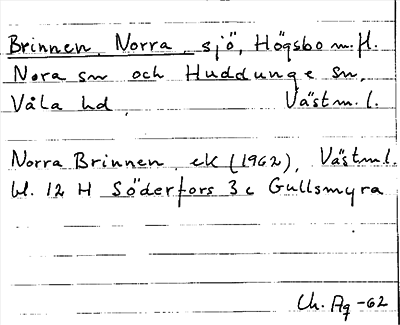 Brinnen, Norra, sjö, Högsbo m.fl.
Nora sn och Huddunge sn,
Våla hd, Västm. l.
Norra Brinnen ek (1962), Västm l.
bl. 12 H Söderfors 3 c Gullsmyra
Ch. Ag -62